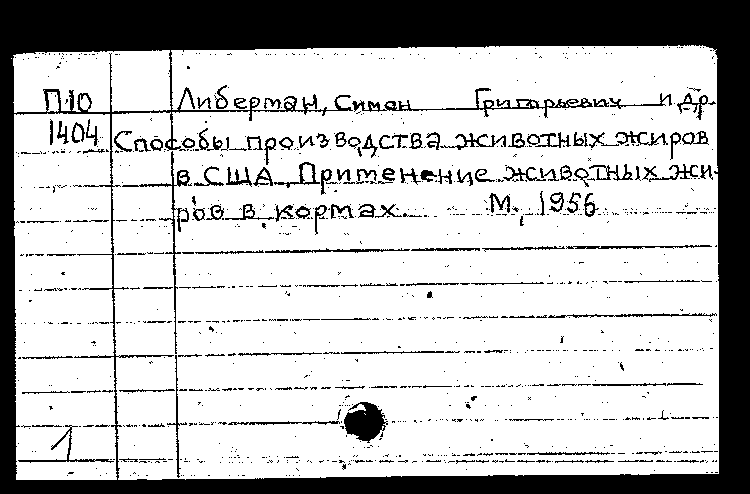 П10 Либерман, Симон Григорьевич и др.
1404 Способы производства животных жиров
в США. Применение животных жи-
ров в кормах. М., 1956
1